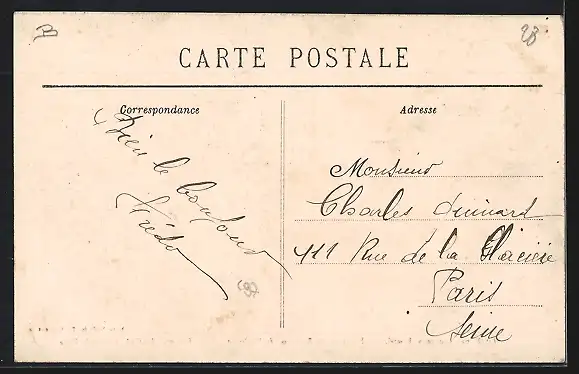 CARTE POSTALE
Correspondance
Adresse
Bien le bonjour
Frédo
Monsieur
Charles
111 Rue de la Glacière
Paris
Seine